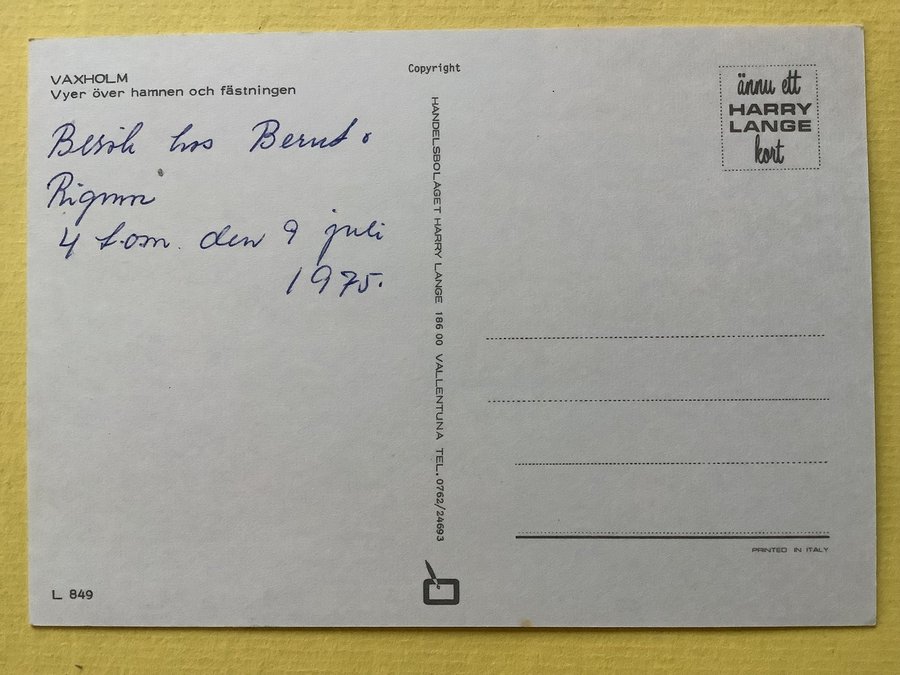 VAXHOLM
Vyer över hamnen och fästningen
Besök hos Bernt o
4 t.o.m. den 9 juli
1975.
L 849
Copyright
HANDELSBOLAGET HARRY LANGE 186 00 VALLENTUNA TEL. 0762/24693
ännu ett
HARRY
LANGE
kort
PRINTED IN ITALY